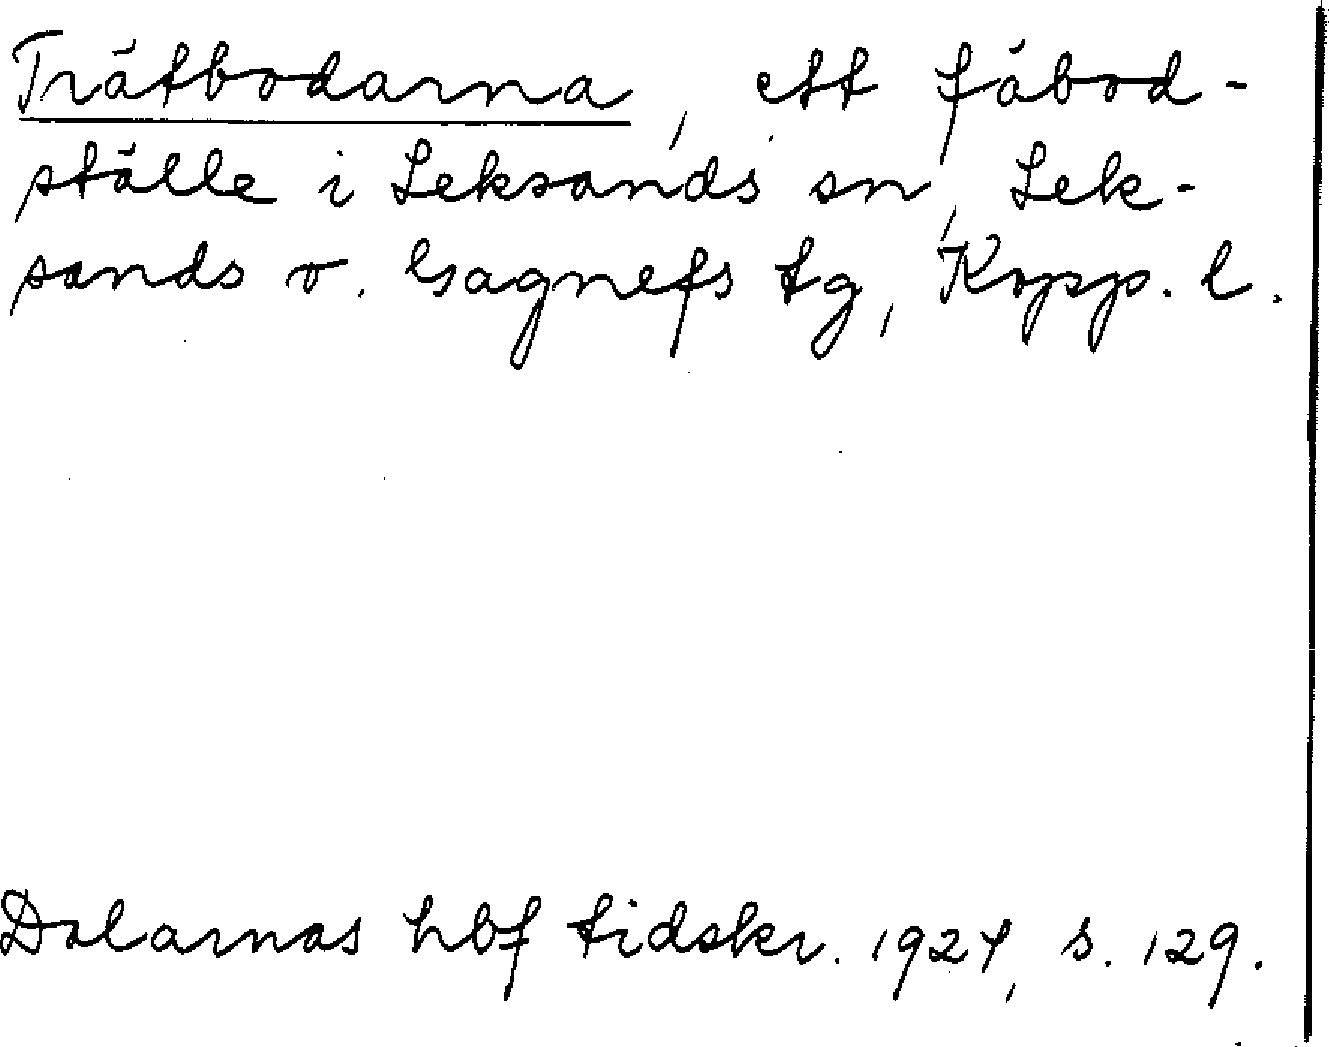 Trätbodarna, ett fäbod-
ställe i Leksands sn, Lek-
sands o. Gagnefs tg, Kopp. l.
Dalarnas hbf tidskr. 1924, s. 129.